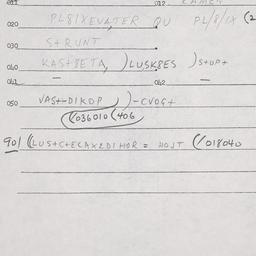 011 012 CAMEN
020 PL8IXEVATER QU PL/8/IX (2
030 STRUNT
040 KAST8ETA, )LUSK8ES )STOP+
041 — 042 —
050 VAST-DIKDP ) )-CVOG+
(/036010 (406
901 (LUS+C+ECAX2DIHOR = HOJT (/018040